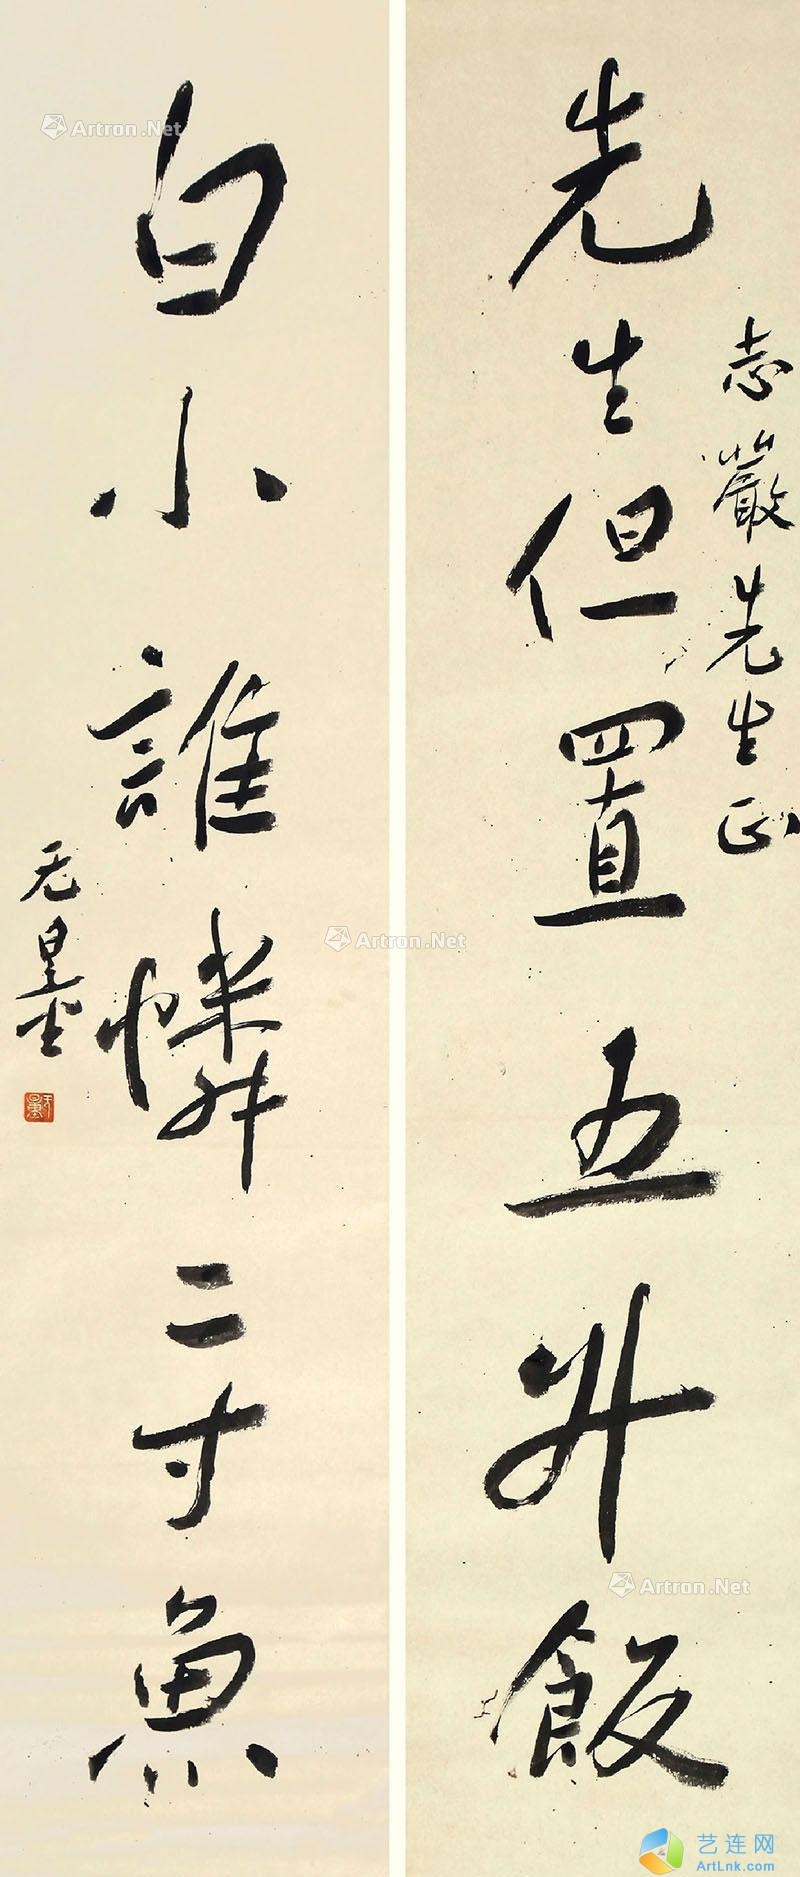 志嚴先生正
先生但置五升飯
白小誰憐二寸魚
无量
Artron.Net
Artron.Net
Artron.Net
艺连网
ArtLnk.com